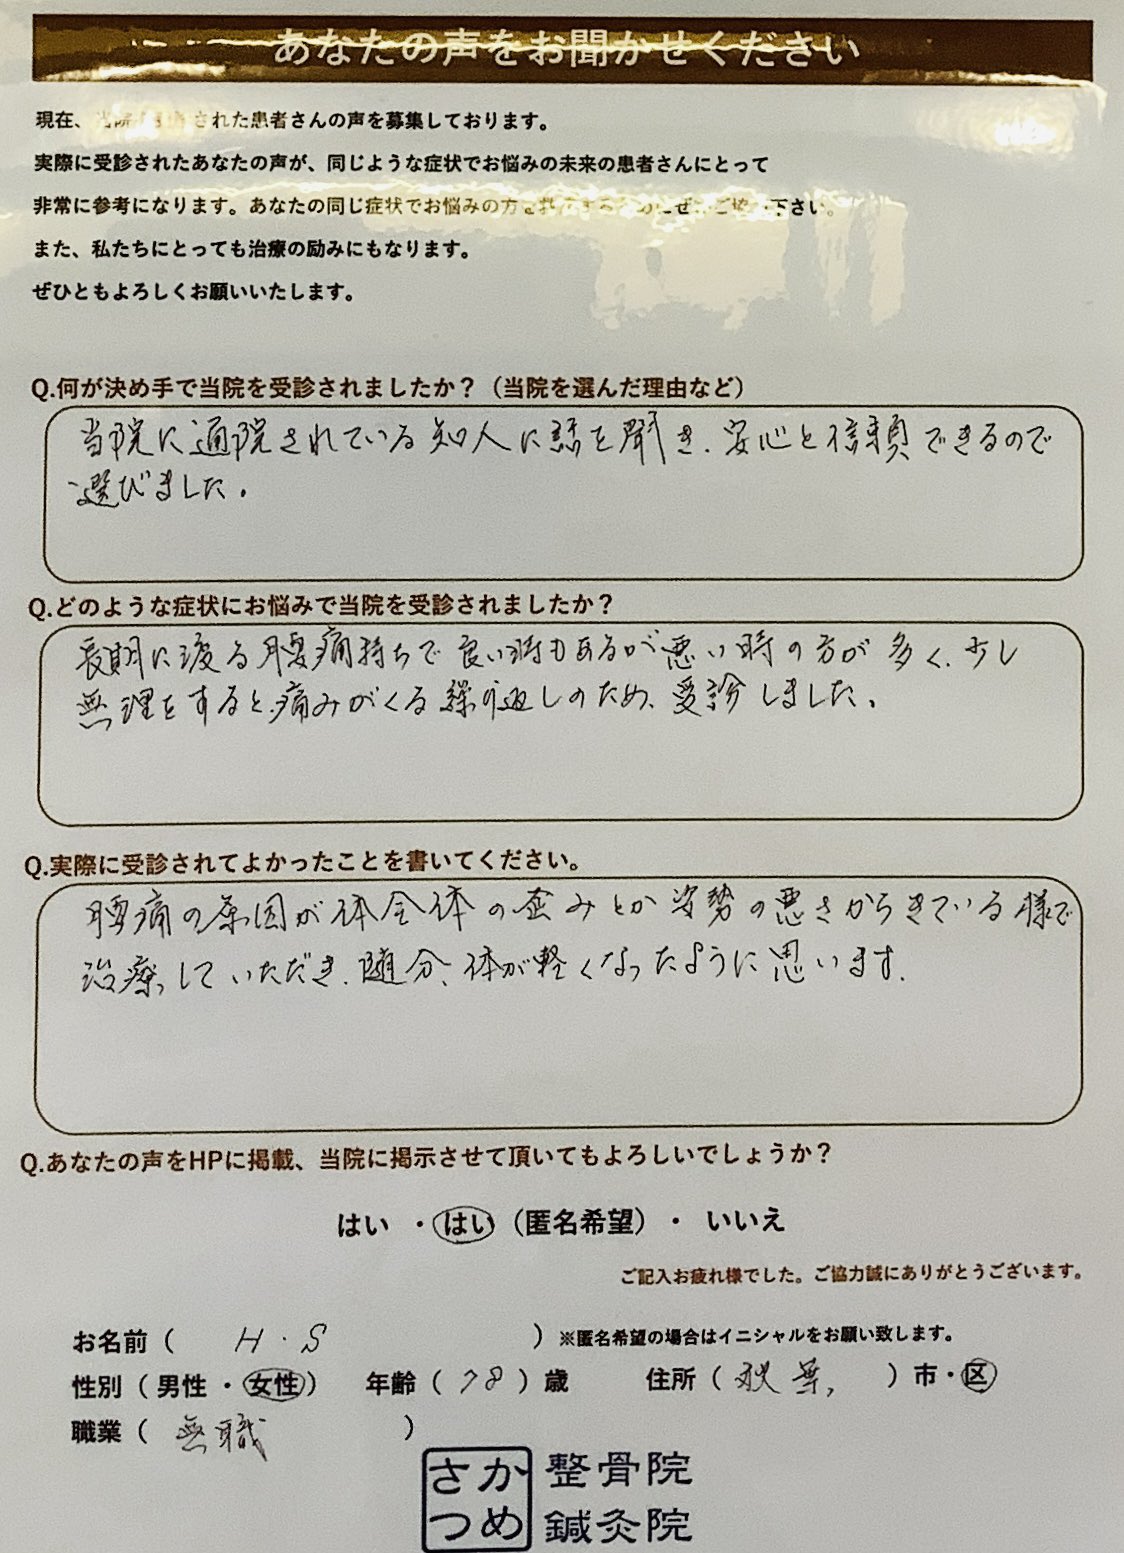 あなたの声をお聞かせください
現在、当院 された患者さんの声を募集しております。
実際に受診されたあなたの声が、同じような症状でお悩みの未来の患者さんにとって
非常に参考になります。あなたの同じ症状でお悩みの方を 下さい。
また、私たちにとっても治療の励みにもなります。
ぜひともよろしくお願いいたします。
Q.何が決め手で当院を受診されましたか？（当院を選んだ理由など）
当院に通院されている知人に話を聞き、安心と信頼できるので
選びました。
Q.どのような症状にお悩みで当院を受診されましたか？
長期に渡る腰痛持ちで良い時もあるが悪い時の方が多く、少し
無理をすると、痛みがくる繰り返しのため、受診しました。
Q.実際に受診されてよかったことを書いてください。
腰痛の原因が体全体の歪みとか姿勢の悪さからきている様で
治療していただき、随分、体が軽くなったように思います。
Q.あなたの声をHPに掲載、当院に掲示させて頂いてもよろしいでしょうか？
はい ・ はい（匿名希望）・ いいえ
ご記入お疲れ様でした。ご協力誠にありがとうございます。
お名前（ H・S ）※匿名希望の場合はイニシャルをお願い致します。
性別（ 男性 ・ 女性 ） 年齢（ 78 ）歳 住所（ 秋葉, ）市・区
職業（ 無職 ）
さかつめ 整骨院
鍼灸院